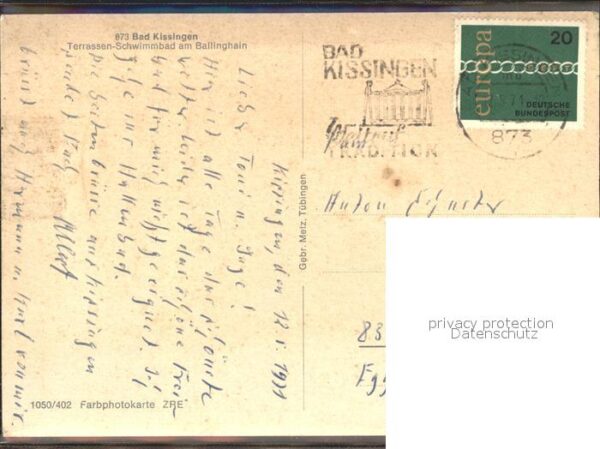 873 Bad Kissingen
Terrassen-Schwimmbad am Ballinghain
Kissingen, den 12. 1971
Lieber Toni u. Inge!
Hier ist alle Tage das schönste
Wetter. Leider ist das schöne Frei-
bad für mich nicht geeignet. Ich
gehe ins Hallenbad.
Die besten Grüsse aus Kissingen
sendet Euch
Albert
Grüsst mir Hermann u. von mir.
1050/402 Farbphotokarte ZRE
Gebr. Metz, Tübingen
BAD
KISSINGEN
Weltruf
TRADITION
873
europa
20
DEUTSCHE
BUNDESPOST
Anton
83
privacy protection
Datenschutz